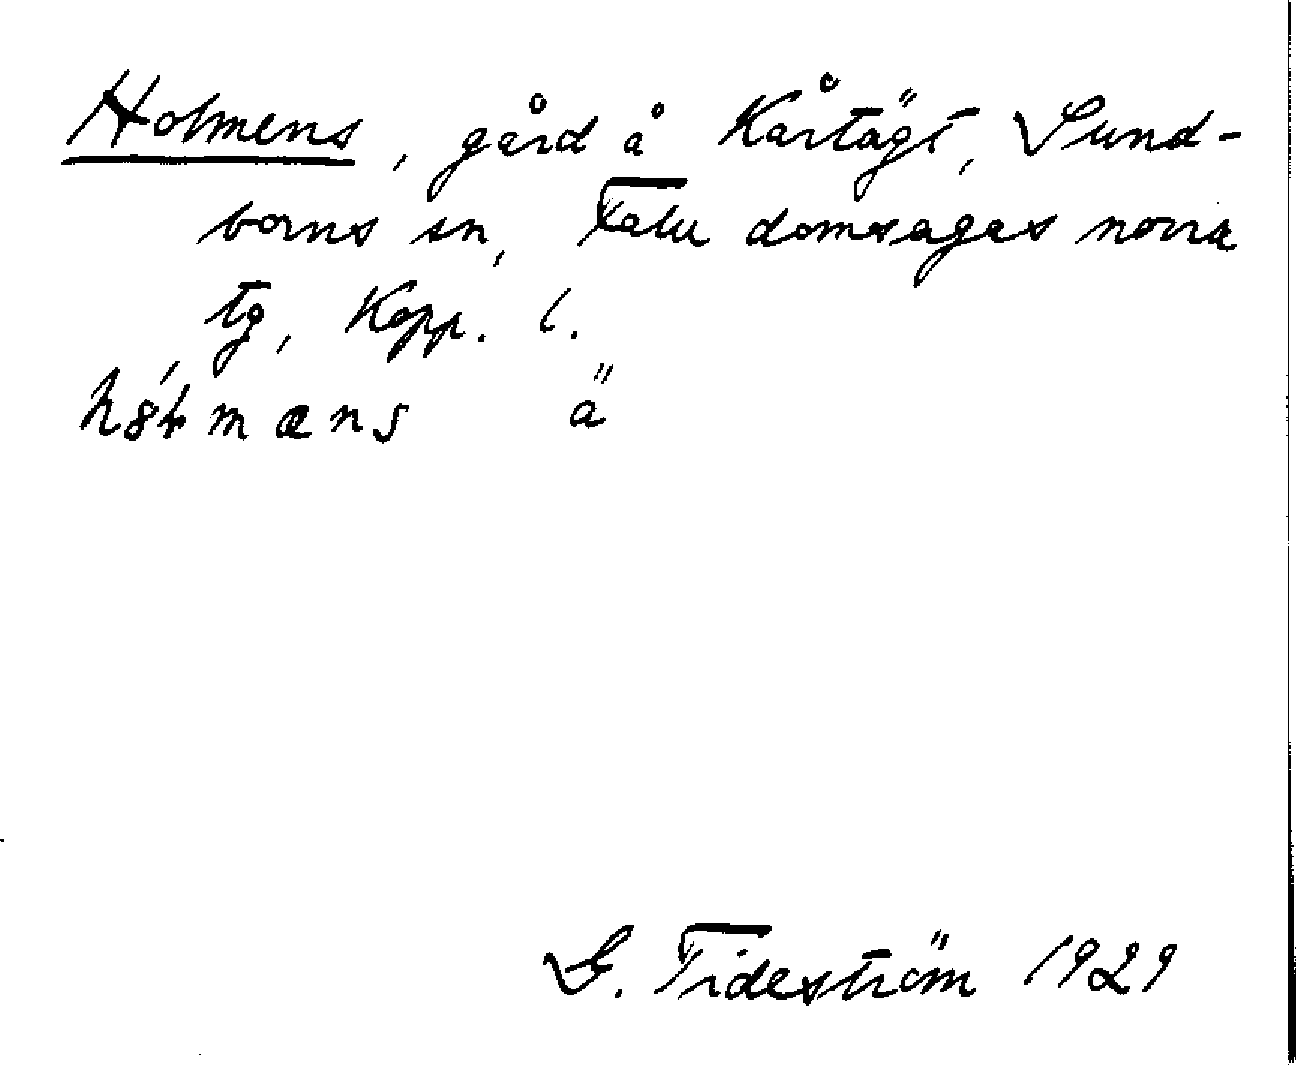 Holmens, gård å Kårtägt, Sund-
borns sn, Falu domsagas norra
tg, Kopp. l.
ä
G. Tideström 1929